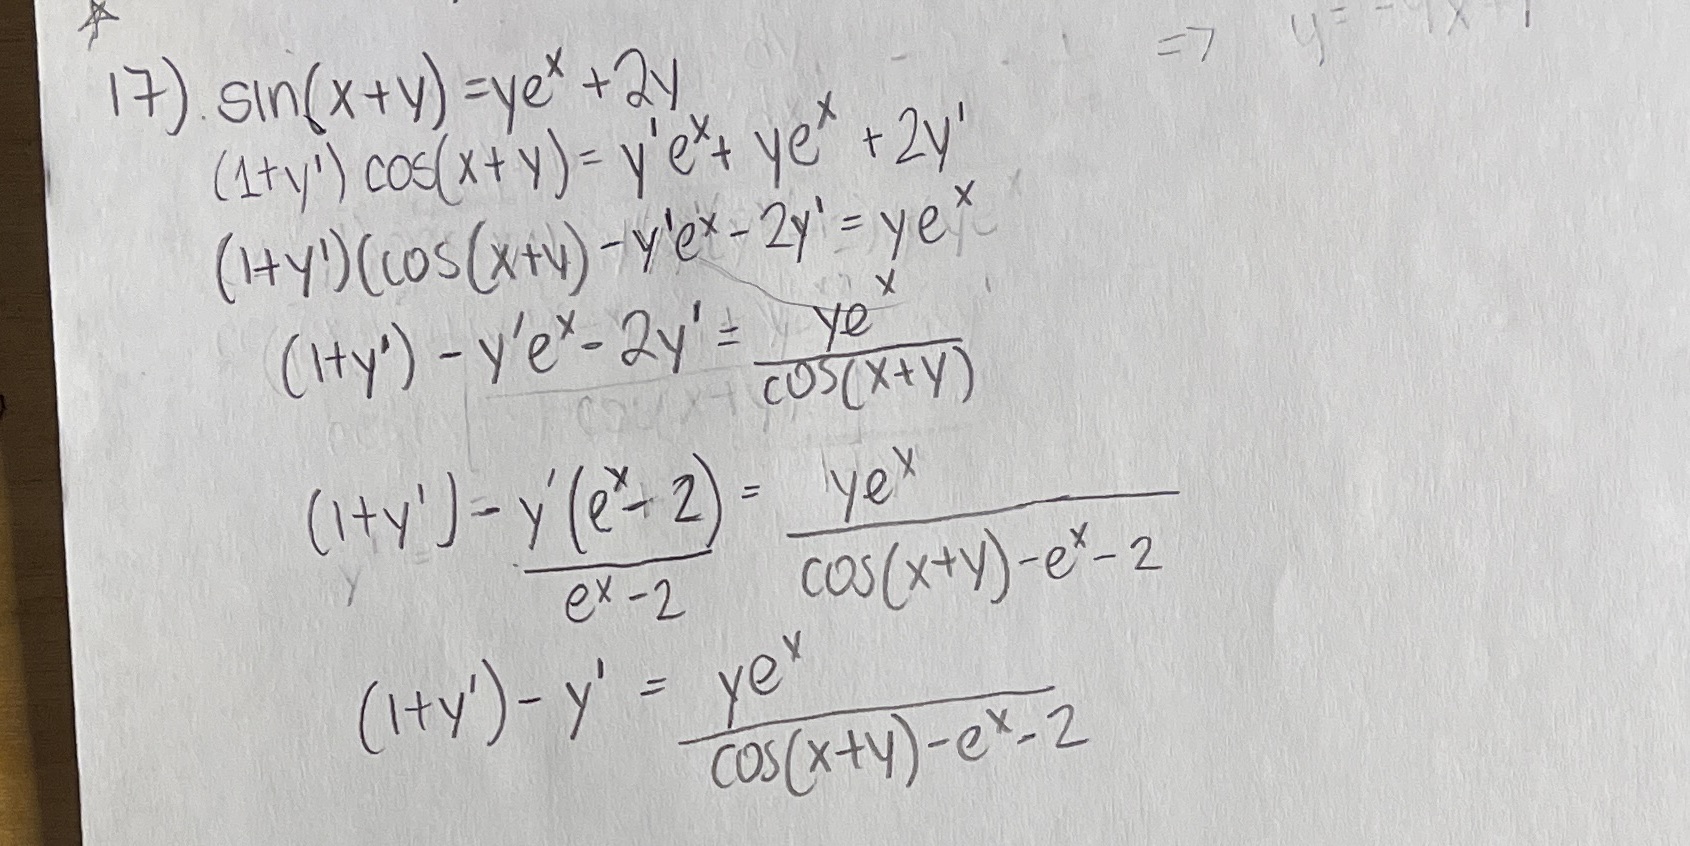 => y = -4x + 1
17). sin(x+y) = ye^x + 2y
(1+y') cos(x+y) = y'e^x + ye^x + 2y'
(1+y')(cos(x+y) - y'e^x - 2y' = ye^x
(1+y') - y'e^x - 2y' = ye^x / cos(x+y)
(1+y') - y'(e^x - 2) / e^x - 2 = ye^x / cos(x+y) - e^x - 2
(1+y') - y' = ye^x / cos(x+y) - e^x - 2